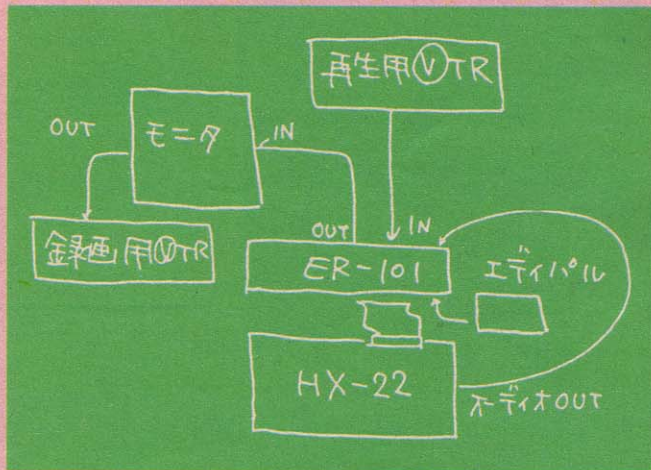 再生用ⓋTR
OUT
モニタ
IN
録画用ⓋTR
OUT
IN
ER-101
エディパル
HX-22
オーディオOUT